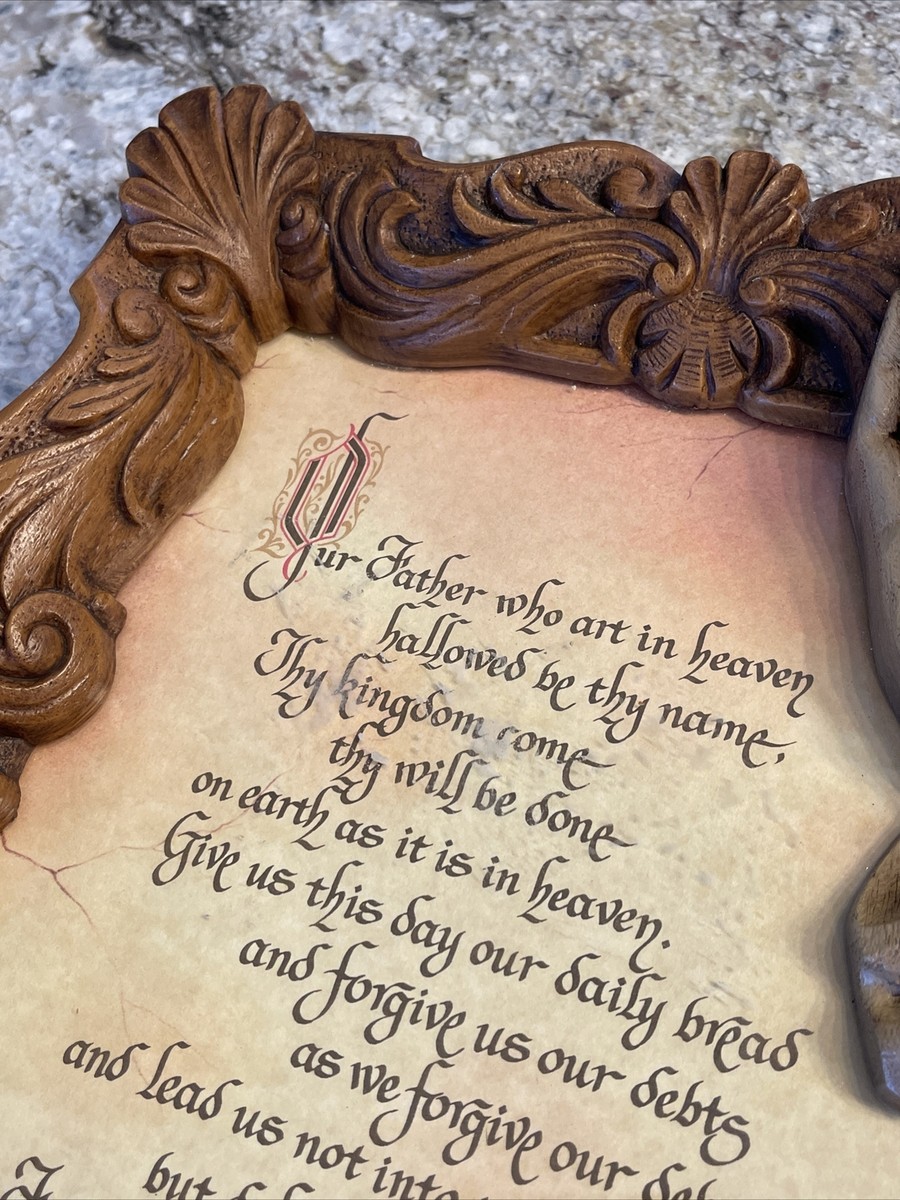 Our Father who art in heaven
hallowed be thy name,
Thy kingdom come
thy will be done
on earth as it is in heaven.
Give us this day our daily bread
and forgive us our debts
as we forgive our
and lead us not into
but